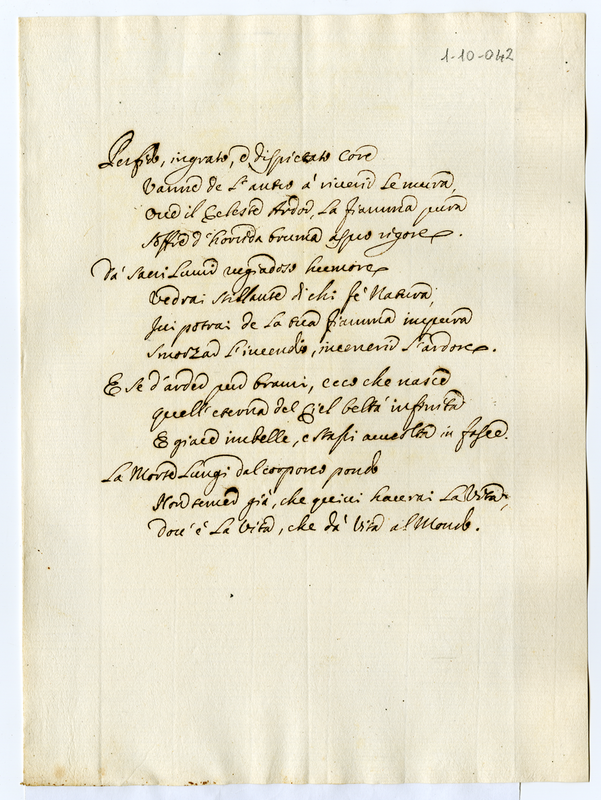 1-10-042
Perfido, ingrato, e dispietato core
Vanne de l'antro à riverir le mura,
Ove il Celeste Ardor, la fiamma pura
Soffre d'horrida bruma aspro rigore.
Da' Sacri Lumi rugiadoso humore
Vedrai stillante di chi fè Natura;
Ivi potrai de la tua fiamma impura
Smorzar l'incendio, incenerir l'ardore.
E se d'arder pur brami, ecco che nasce
quell'eterna del Ciel beltà infinita
E giace imbelle, e stassi accolta in fasce.
La Morte Lungi dal corporeo pondo
Non temer già, che quivi haverai La Vita,
dov'è La Vita, che dà Vita al Mondo.